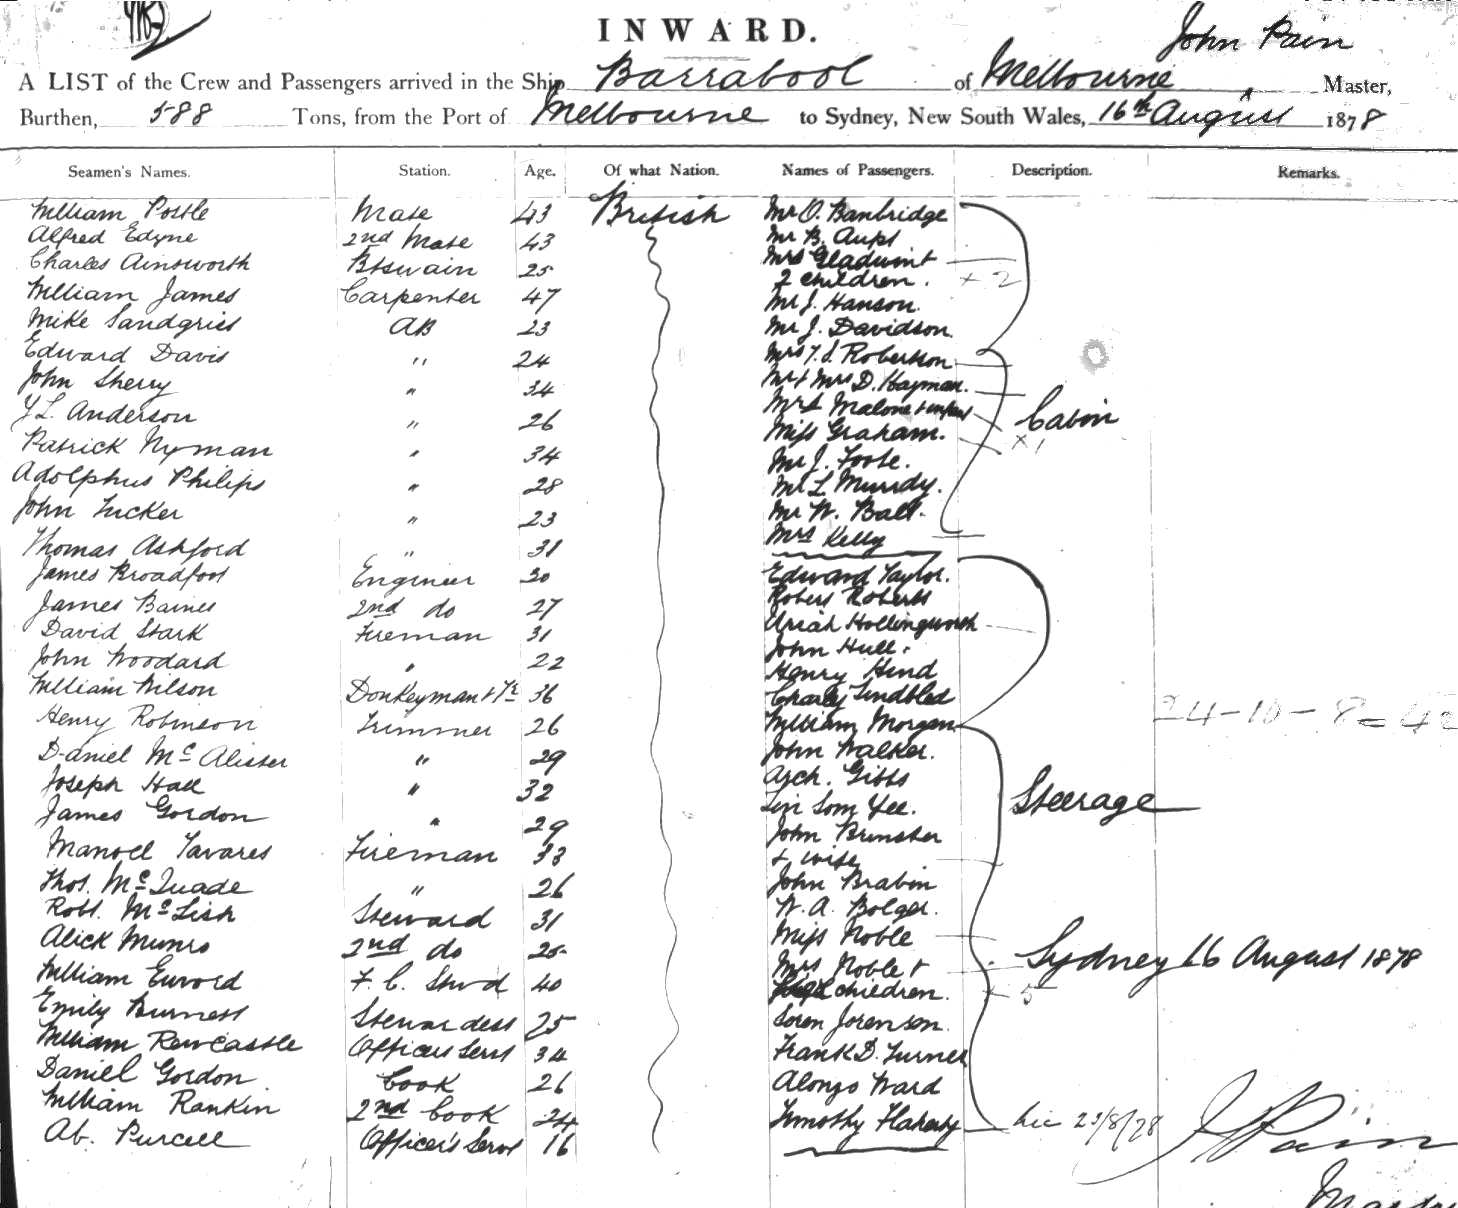 INWARD.
John Pain
A LIST of the Crew and Passengers arrived in the Ship Barrabool of Melbourne Master,
Burthen, 588 Tons, from the Port of Melbourne to Sydney, New South Wales, 16th August 1878
Seamen's Names. Station. Age. Of what Nation. Names of Passengers. Description. Remarks.
William Postle Mate 43 British Mr O. Banbridge
Alfred Edyne 2nd Mate 43 Mr B.
Charles Ainsworth Btswain 25 Mrs
2 children. + 2
William James Carpenter 47 Mr J. Hanson.
Mike AB 23 Mr J. Davidson.
Edward Davis " 24 Mrs T. S. Robertson
John Sherry " 34 Mr + Mrs D. Hayman.
Y L. Anderson " 26 Mrs Malone + infant Cabin
Miss Graham. × 1
Patrick Nyman " 34 Mr J. Foote.
Adolphus Philips " 28 Mr L Mundy.
John Tucker " 23 Mr W. Ball.
Thomas Ashford " 31 Mrs Kelly
James Broadfoot Engineer 30 Edward Taylor.
James Baines 2nd do 27 Robert Roberts
David Stark Fireman 31 Uriah Hollingworth
John Hull.
John Woodard " 22 Henry Hind
William Wilson Donkeyman + 36 Charly Lindbled
24-10-8=42
Henry Robinson Trimmer 26 William Morgan
Daniel McAlister " 29 John Walker.
Joseph Hall " 32 Arch. Gibbs
James Gordon " 29 Lin Som Yee. Steerage
John Brunster
Manoel Tavares Fireman 33 + wife
Thos. McQuade " 26 John Brabin
Robt. McLish Steward 31 W. A. Bolger.
Alick Munro 2nd do 25 Miss Noble
Mrs Noble + Sydney 16 August 1878
William F. C. Stwd 40 children. + 5
Emily Burness Stewardess 25 Soren Jorensen.
William Rewcastle Officers Servt 34 Frank D. Turner
Daniel Gordon Cook 26 Alonzo Ward
William Rankin 2nd Cook 24 Timothy Flaherty
Ab. Purcell Officer's Servt 16
J Pain